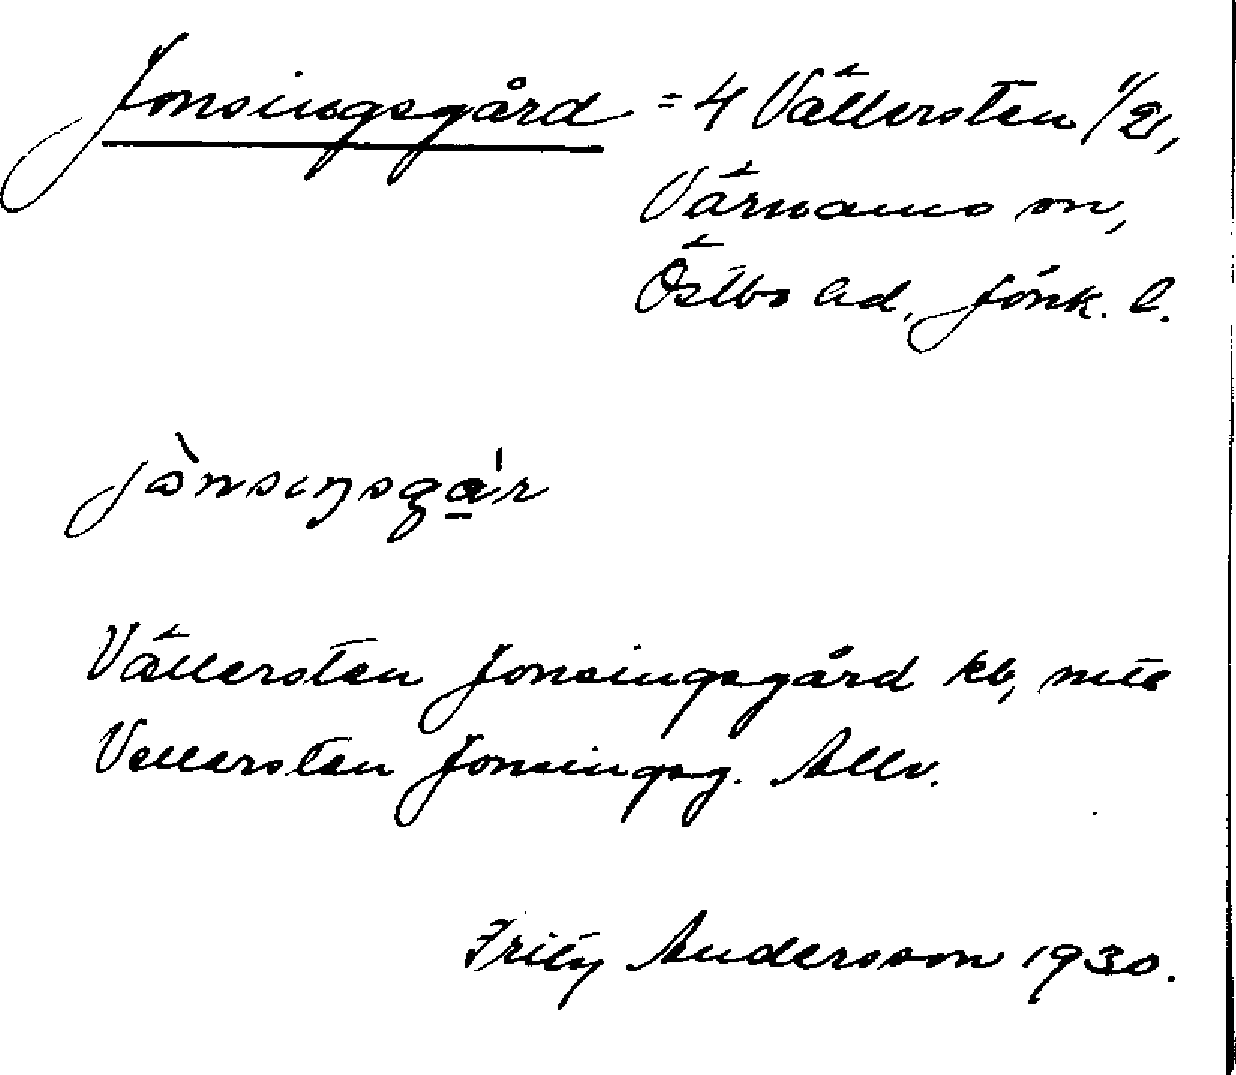 Jonsingsgård = 4 Vällersten 1/2,
Värnamo sn,
Östbo hd, Jönk. l.
jònsiŋsgá̱r
Vällersten Jonsingsgård kb,
Vellersten Jonsingsg. Allv.
Fritz Andersson 1930.